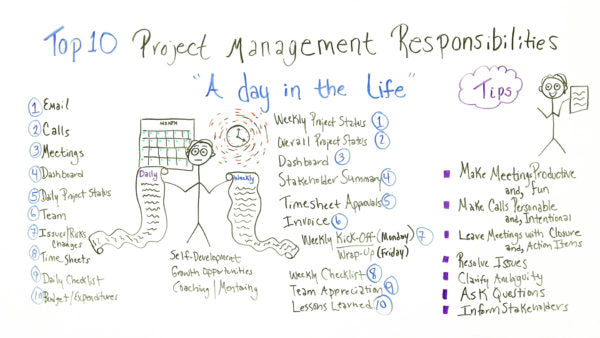 Top 10 Project Management Responsibilities
"A day in the Life"
1 Email
2 Calls
3 Meetings
4 Dashboard
5 Daily Project Status
6 Team
7 Issues/Risks
Changes
8 Time Sheets
9 Daily Checklist
10 Budget/Expenditures
MONTH
Daily
Weekly
Self-Development
Growth Opportunities
Coaching/Mentoring
Weekly Project Status 1
Overall Project Status 2
Dashboard 3
Stakeholder Summary 4
Timesheet Approvals 5
Invoice 6
Weekly Kick-Off (Monday) 7
Wrap-Up (Friday)
Weekly Checklist 8
Team Appreciation 9
Lessons Learned 10
Tips
Make Meetings Productive
and, Fun
Make Calls Personable
and, Intentional
Leave Meetings with Closure
and, Action Items
Resolve Issues
Clarify Ambiguity
Ask Questions
Inform Stakeholders